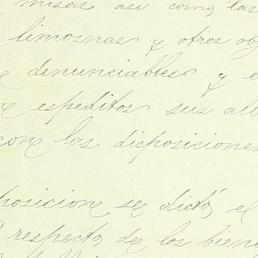 misas así como las
limosnas y otros obj
denunciables y e
espeditos sus alb
con las disposiciones
posicion se dictó, el
respecto de los biene